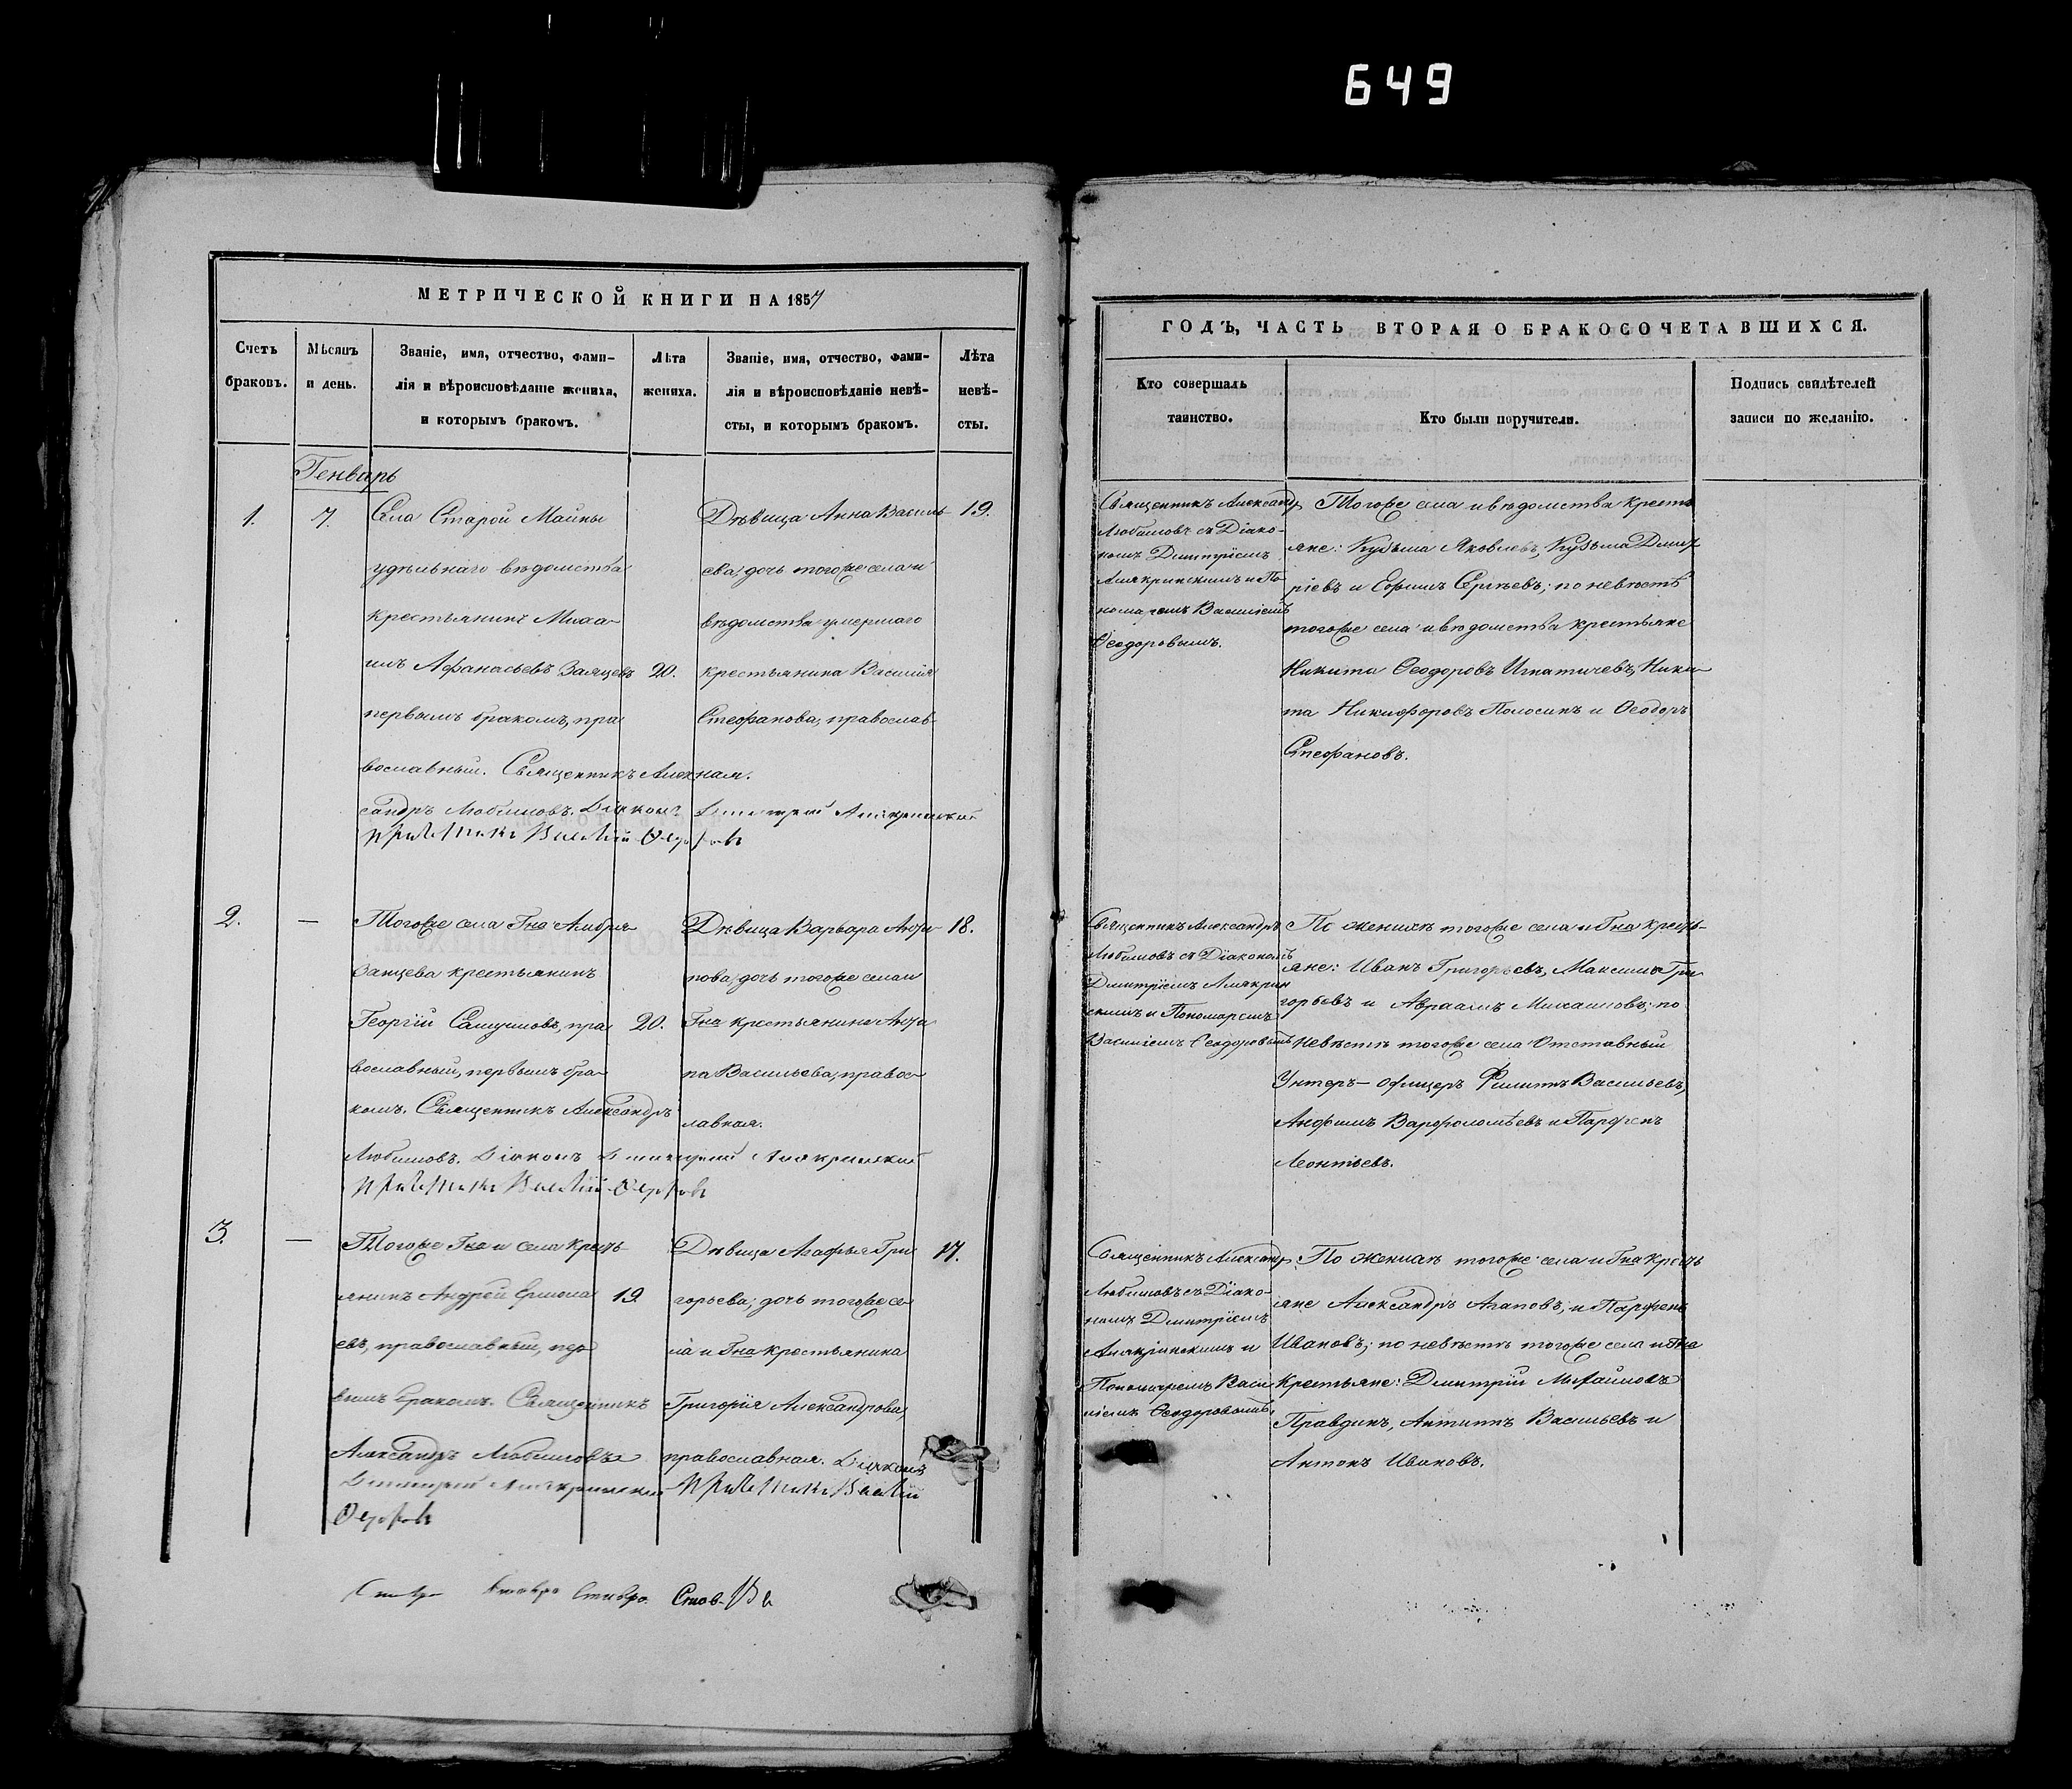 649
МЕТРИЧЕСКОЙ КНИГИ НА 1857
Счетъ браковъ.
Мѣсяцъ и день.
Званіе, имя, отчество, фами-
лія и вѣроисповѣданіе жениха,
и которымъ бракомъ.
Лѣта жениха.
Званіе, имя, отчество, фами-
лія и вѣроисповѣданіе невѣ-
сты, и которымъ бракомъ.
Лѣта невѣ-
сты.
Генварь
1.
7.
Села Старой Майны
удѣльнаго вѣдомства
крестьянинъ Миха-
илъ Афанасьевъ Заяцевъ
первымъ бракомъ, пра
вославный. Священникъ Алек
сандръ Любимовъ. Діаконъ Димитрій
20.
Дѣвица Анна Василь
ева; дочь тогоже села и
вѣдомства умершаго
крестьянина Василія
Стефанова, православ
ная.
19.
2.
—
Тогоже села Гна
крестьянинъ
Георгій пра
вославный, первымъ бра-
комъ. Священникъ Александръ
Любимовъ. Діаконъ Димитрій
20.
Дѣвица Варвара Анфи
нова; дочь тогоже села и
Гна крестьянина
Васильева; правос-
лавная.
18.
3.
—
Тогоже Гна и села кресть-
янинъ Андрей Ермола
евъ, православный, пер
вымъ бракомъ. Священникъ
Александръ Любимовъ
19
Дѣвица Агафья Гри
горьева; дочь тогоже се-
ла и Гна крестьянина
Григорія Александрова,
православная. Діаконъ
17.
ГОДЪ, ЧАСТЬ ВТОРАЯ О БРАКОСОЧЕТАВШИХСЯ.
Кто совершалъ
таинство.
Кто были поручители.
Подпись свидѣтелей
записи по желанію.
Священникъ Александр
Любимовъ съ Діако-
номъ Димитріемъ
и По
номаремъ Василіемъ
Ѳеодоровымъ.
Тогоже села и вѣдомства кресть
яне: Кузьма Яковлевъ, Кузьма Дмит
ріевъ и Ефимъ Сергѣевъ; по невѣстѣ
тогоже села и вѣдомства крестьяне
Никита Ѳеодоровъ Игнатичевъ, Ники
та Никифоровъ Полосинъ и Ѳеодоръ
Стефановъ.
Священникъ Александръ
Любимовъ съ Діакономъ
Димитріемъ
и Пономаремъ
Василіемъ Ѳеодоровымъ
По женихѣ тогоже села и Гна кресть-
яне: Иванъ Григорьевъ, Максимъ Гри
горьевъ и Авраамъ Михаиловъ; по
невѣстѣ тогоже села Отставный
Унтеръ-офицеръ Филиппъ Васильевъ,
Анфимъ Варфоломѣевъ и Парфенъ
Леонтьевъ.
Священникъ Александр
Любимовъ съ Діако-
номъ Димитріемъ
и
Пономаремъ Васи
ліемъ Ѳеодоровымъ.
По женихѣ тогоже села и Гна кресть
яне Александръ Агаповъ, и Парфенъ
Ивановъ; по невѣстѣ тогоже села и Гна
Крестьяне: Димитрій Михаиловъ
Правдинъ, Антипъ Васильевъ и
Антонъ Ивановъ.